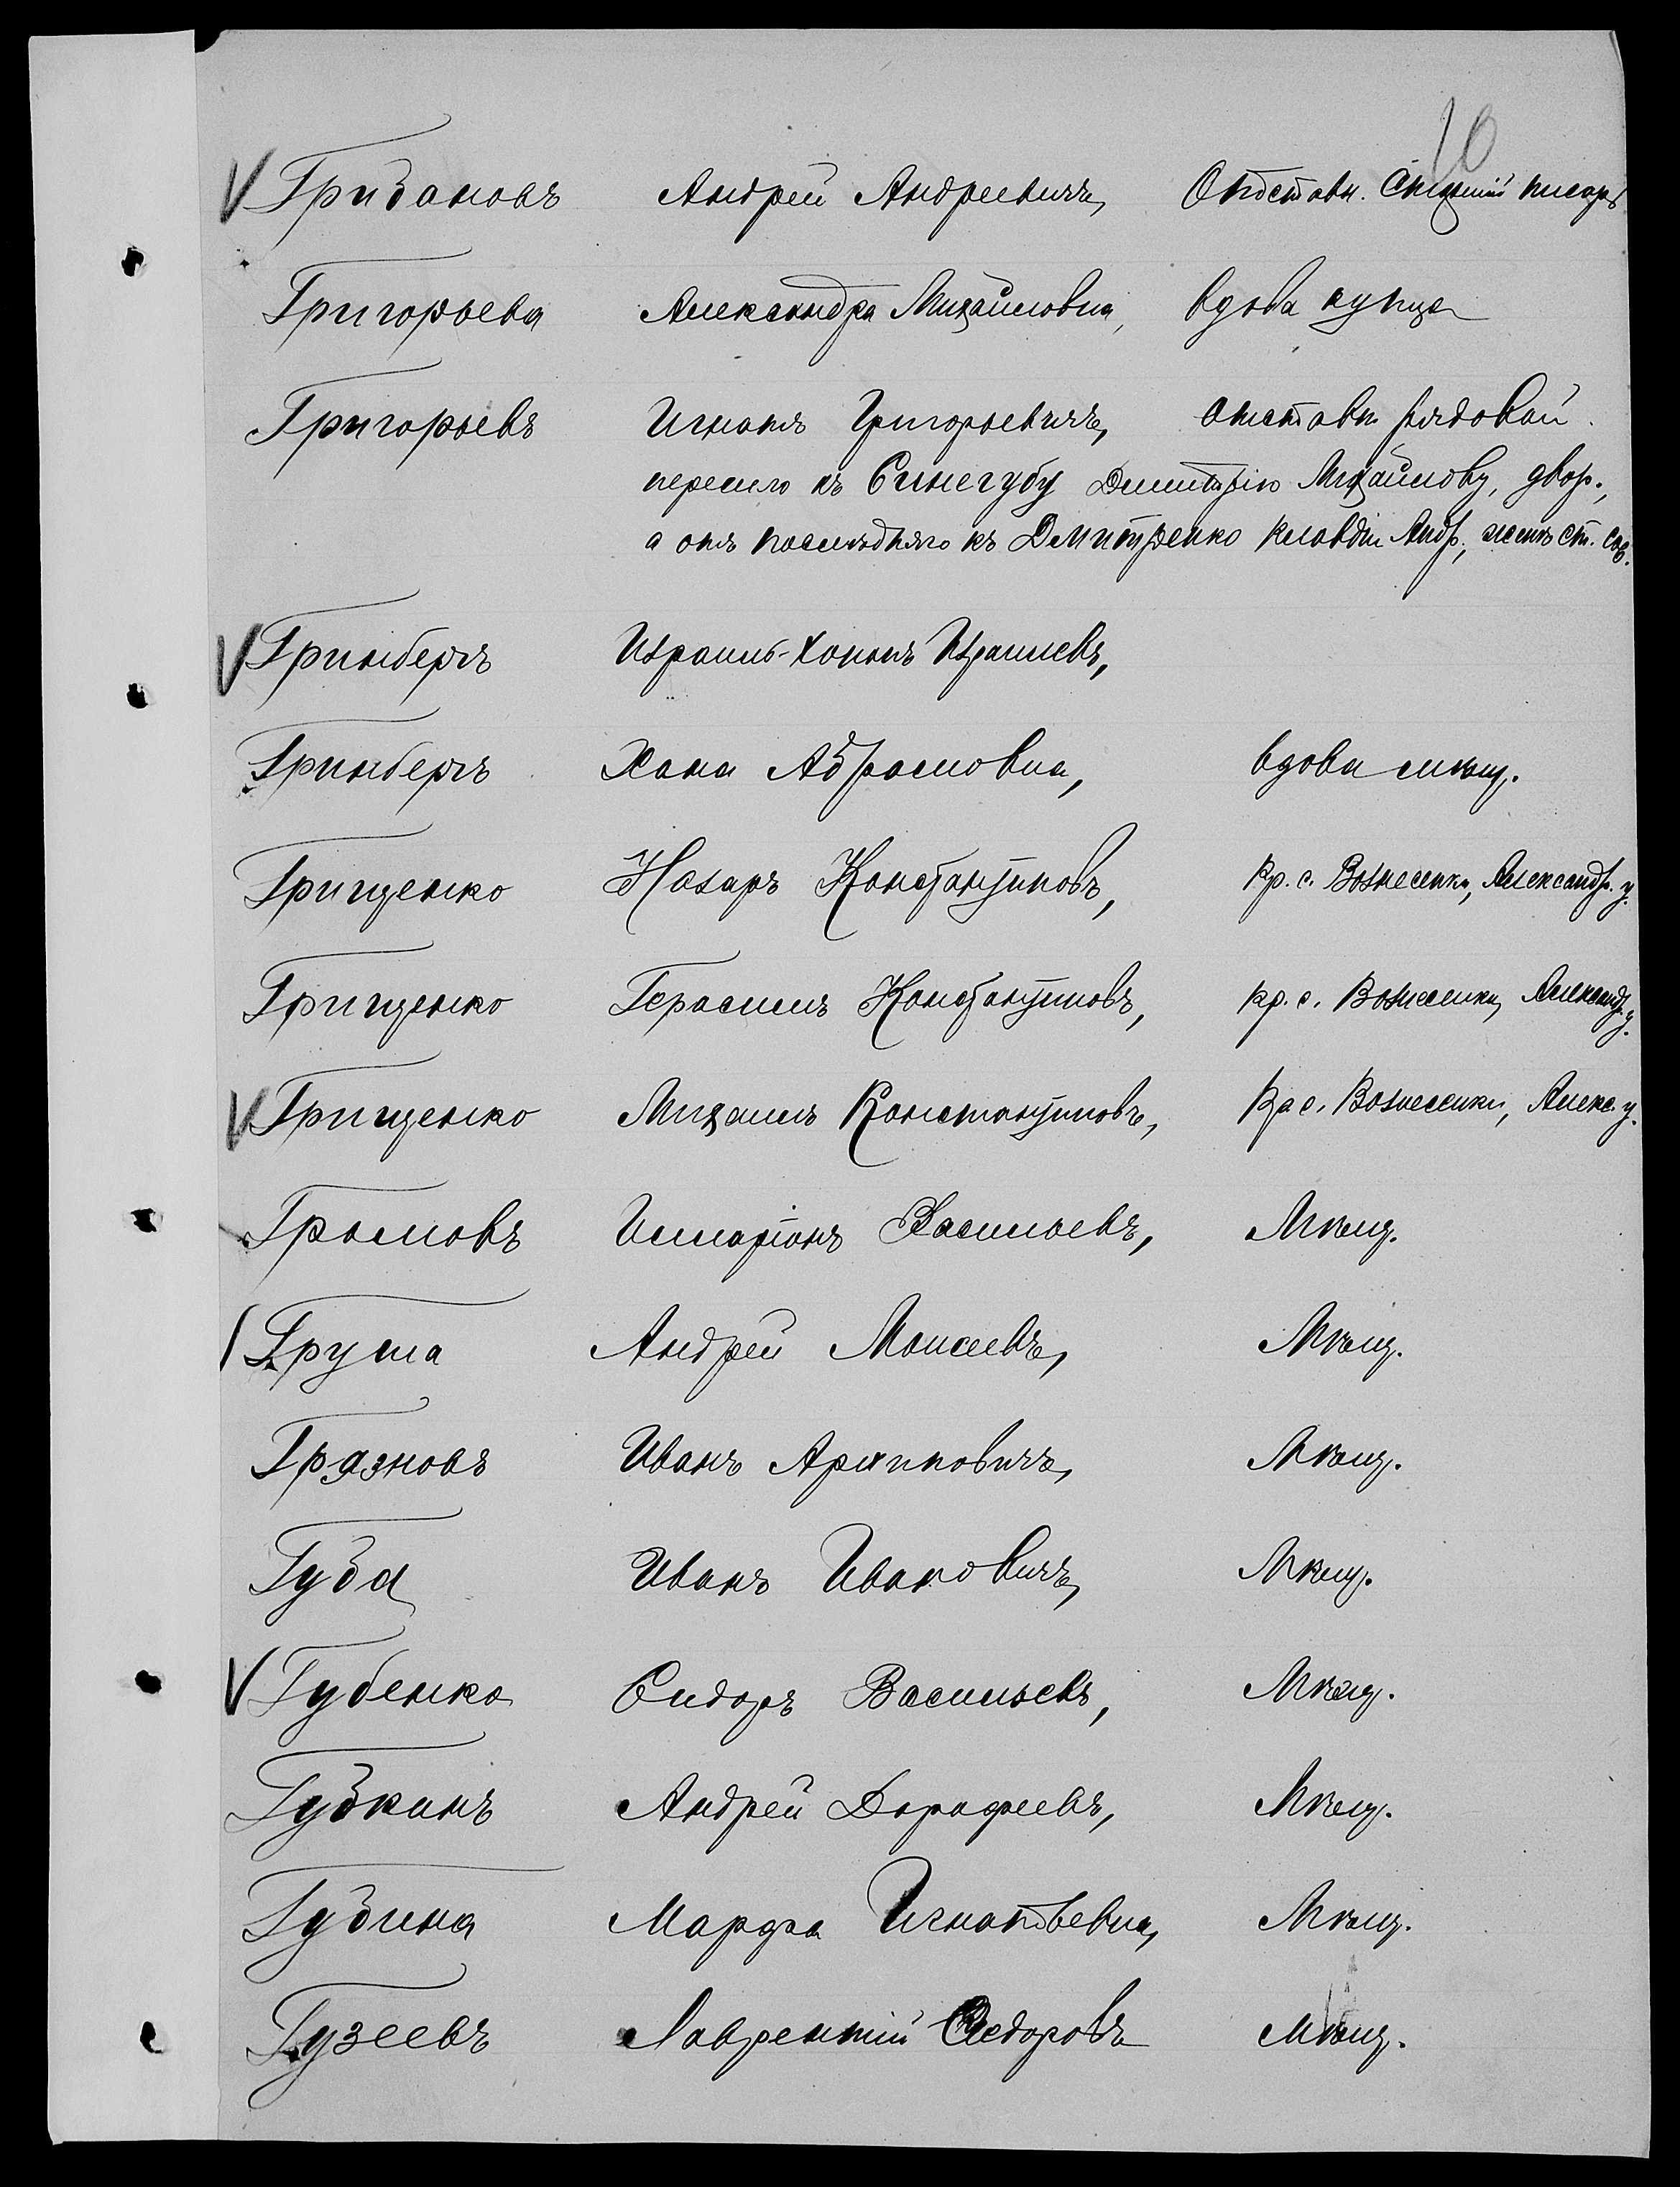 10
Грибановъ Андрей Андреевичъ, Отставн. Старшій писарь
Григорьева Александра Михайловна, вдова купца
Григорьевъ Игнатъ Григорьевичъ, отставн. рядовой.
перешло къ Синегубу Дмитрію Михайлову, двор.,
а отъ послѣдняго къ Дмитренко Клавдіи Андр., женѣ ст. сов.
Гринбергъ Израиль-Хаимъ Израилевъ,
Гринбергъ Хана Абрамовна, вдова мѣщ.
Грищенко Назаръ Константиновъ, Кр. с. Вознесенки, Александр. у.
Грищенко Герасимъ Константиновъ, Кр. с. Вознесенки, Александ. у.
Грищенко Михаилъ Константиновъ, Кр. с. Вознесенки, Алекс. у.
Громовъ Илларіонъ Васильевъ, Мѣщ.
Груша Андрей Моисеевъ, Мѣщ.
Грязновъ Иванъ Архиповичъ, Мѣщ.
Губа Иванъ Ивановичъ, Мѣщ.
Губенко Сидоръ Васильевъ, Мѣщ.
Губкинъ Андрей Дорофеевъ, Мѣщ.
Губина Марфа Игнатьевна, Мѣщ.
Гузеевъ Лаврентій Федоровъ мѣщ.